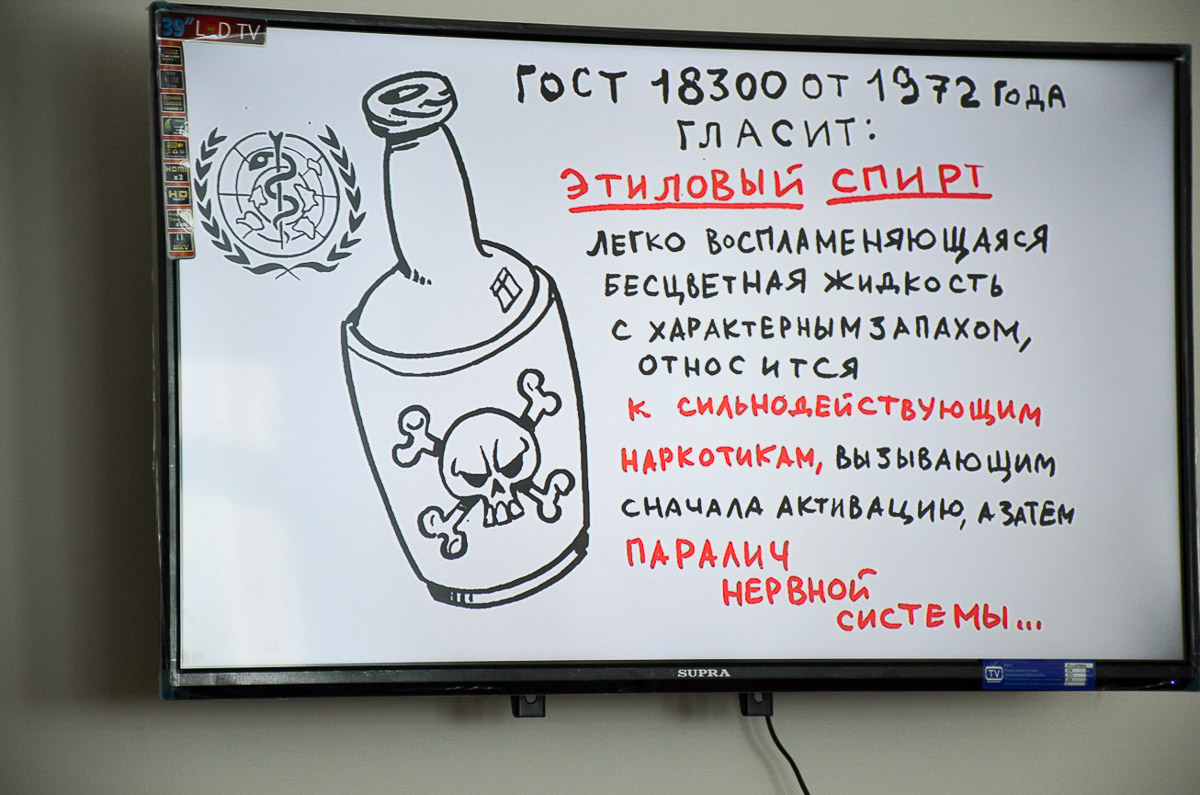 39" L-D TV
ГОСТ 18300 ОТ 1972 ГОДА
ГЛАСИТ:
ЭТИЛОВЫЙ СПИРТ
ЛЕГКО ВОСПЛАМЕНЯЮЩАЯСЯ
БЕСЦВЕТНАЯ ЖИДКОСТЬ
С ХАРАКТЕРНЫМ ЗАПАХОМ,
ОТНОСИТСЯ
К СИЛЬНОДЕЙСТВУЮЩИМ
НАРКОТИКАМ, ВЫЗЫВАЮЩИМ
СНАЧАЛА АКТИВАЦИЮ, А ЗАТЕМ
ПАРАЛИЧ
НЕРВНОЙ
СИСТЕМЫ...
HDMI
x3
HD
SUPRA
TV